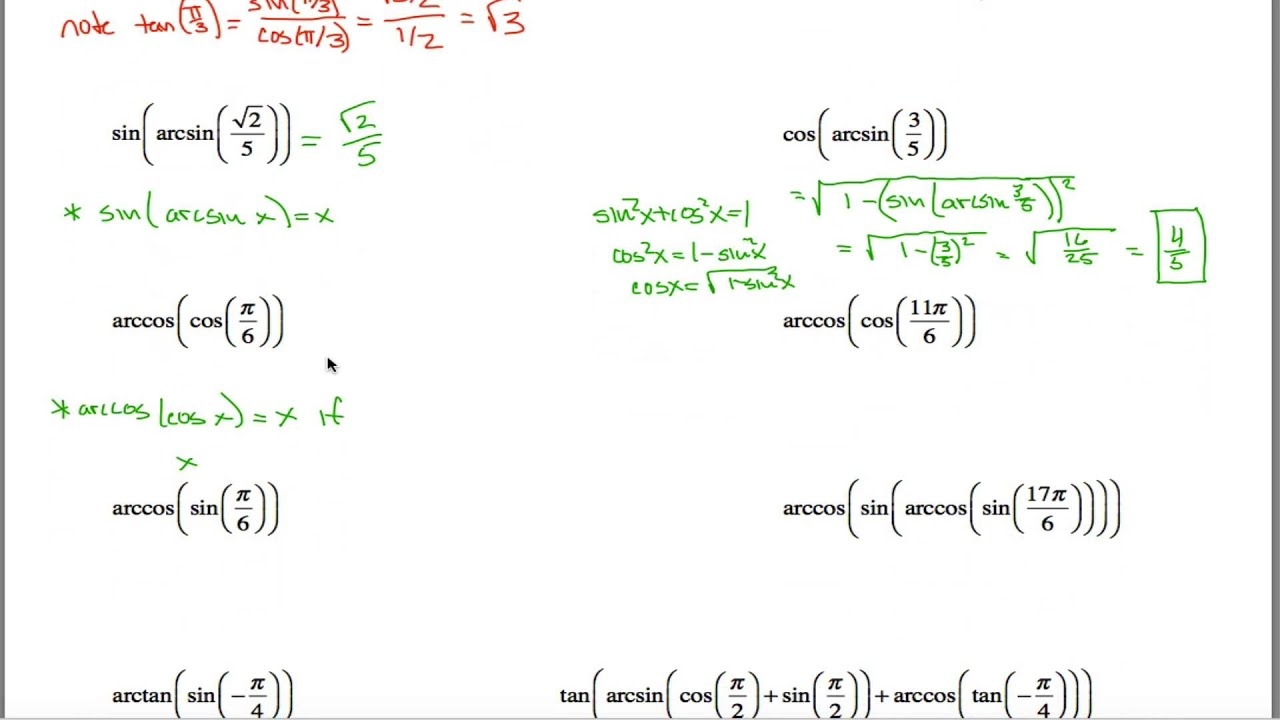 note tan(π/3) = sin(π/3)/cos(π/3) = /1/2 = √3
sin(arcsin(√2/5)) = √2/5
* sin(arcsin x) = x
cos(arcsin(3/5))
= √1-(sin(arcsin 3/5))²
sin²x+cos²x=1
cos²x=1-sin²x
cosx=√1-sin²x
= √1-(3/5)² = √16/25 = 4/5
arccos(cos(π/6))
arccos(cos(11π/6))
* arccos(cos x) = x if
x
arccos(sin(π/6))
arccos(sin(arccos(sin(17π/6))))
arctan(sin(-π/4))
tan(arcsin(cos(π/2)+sin(π/2))+arccos(tan(-π/4)))